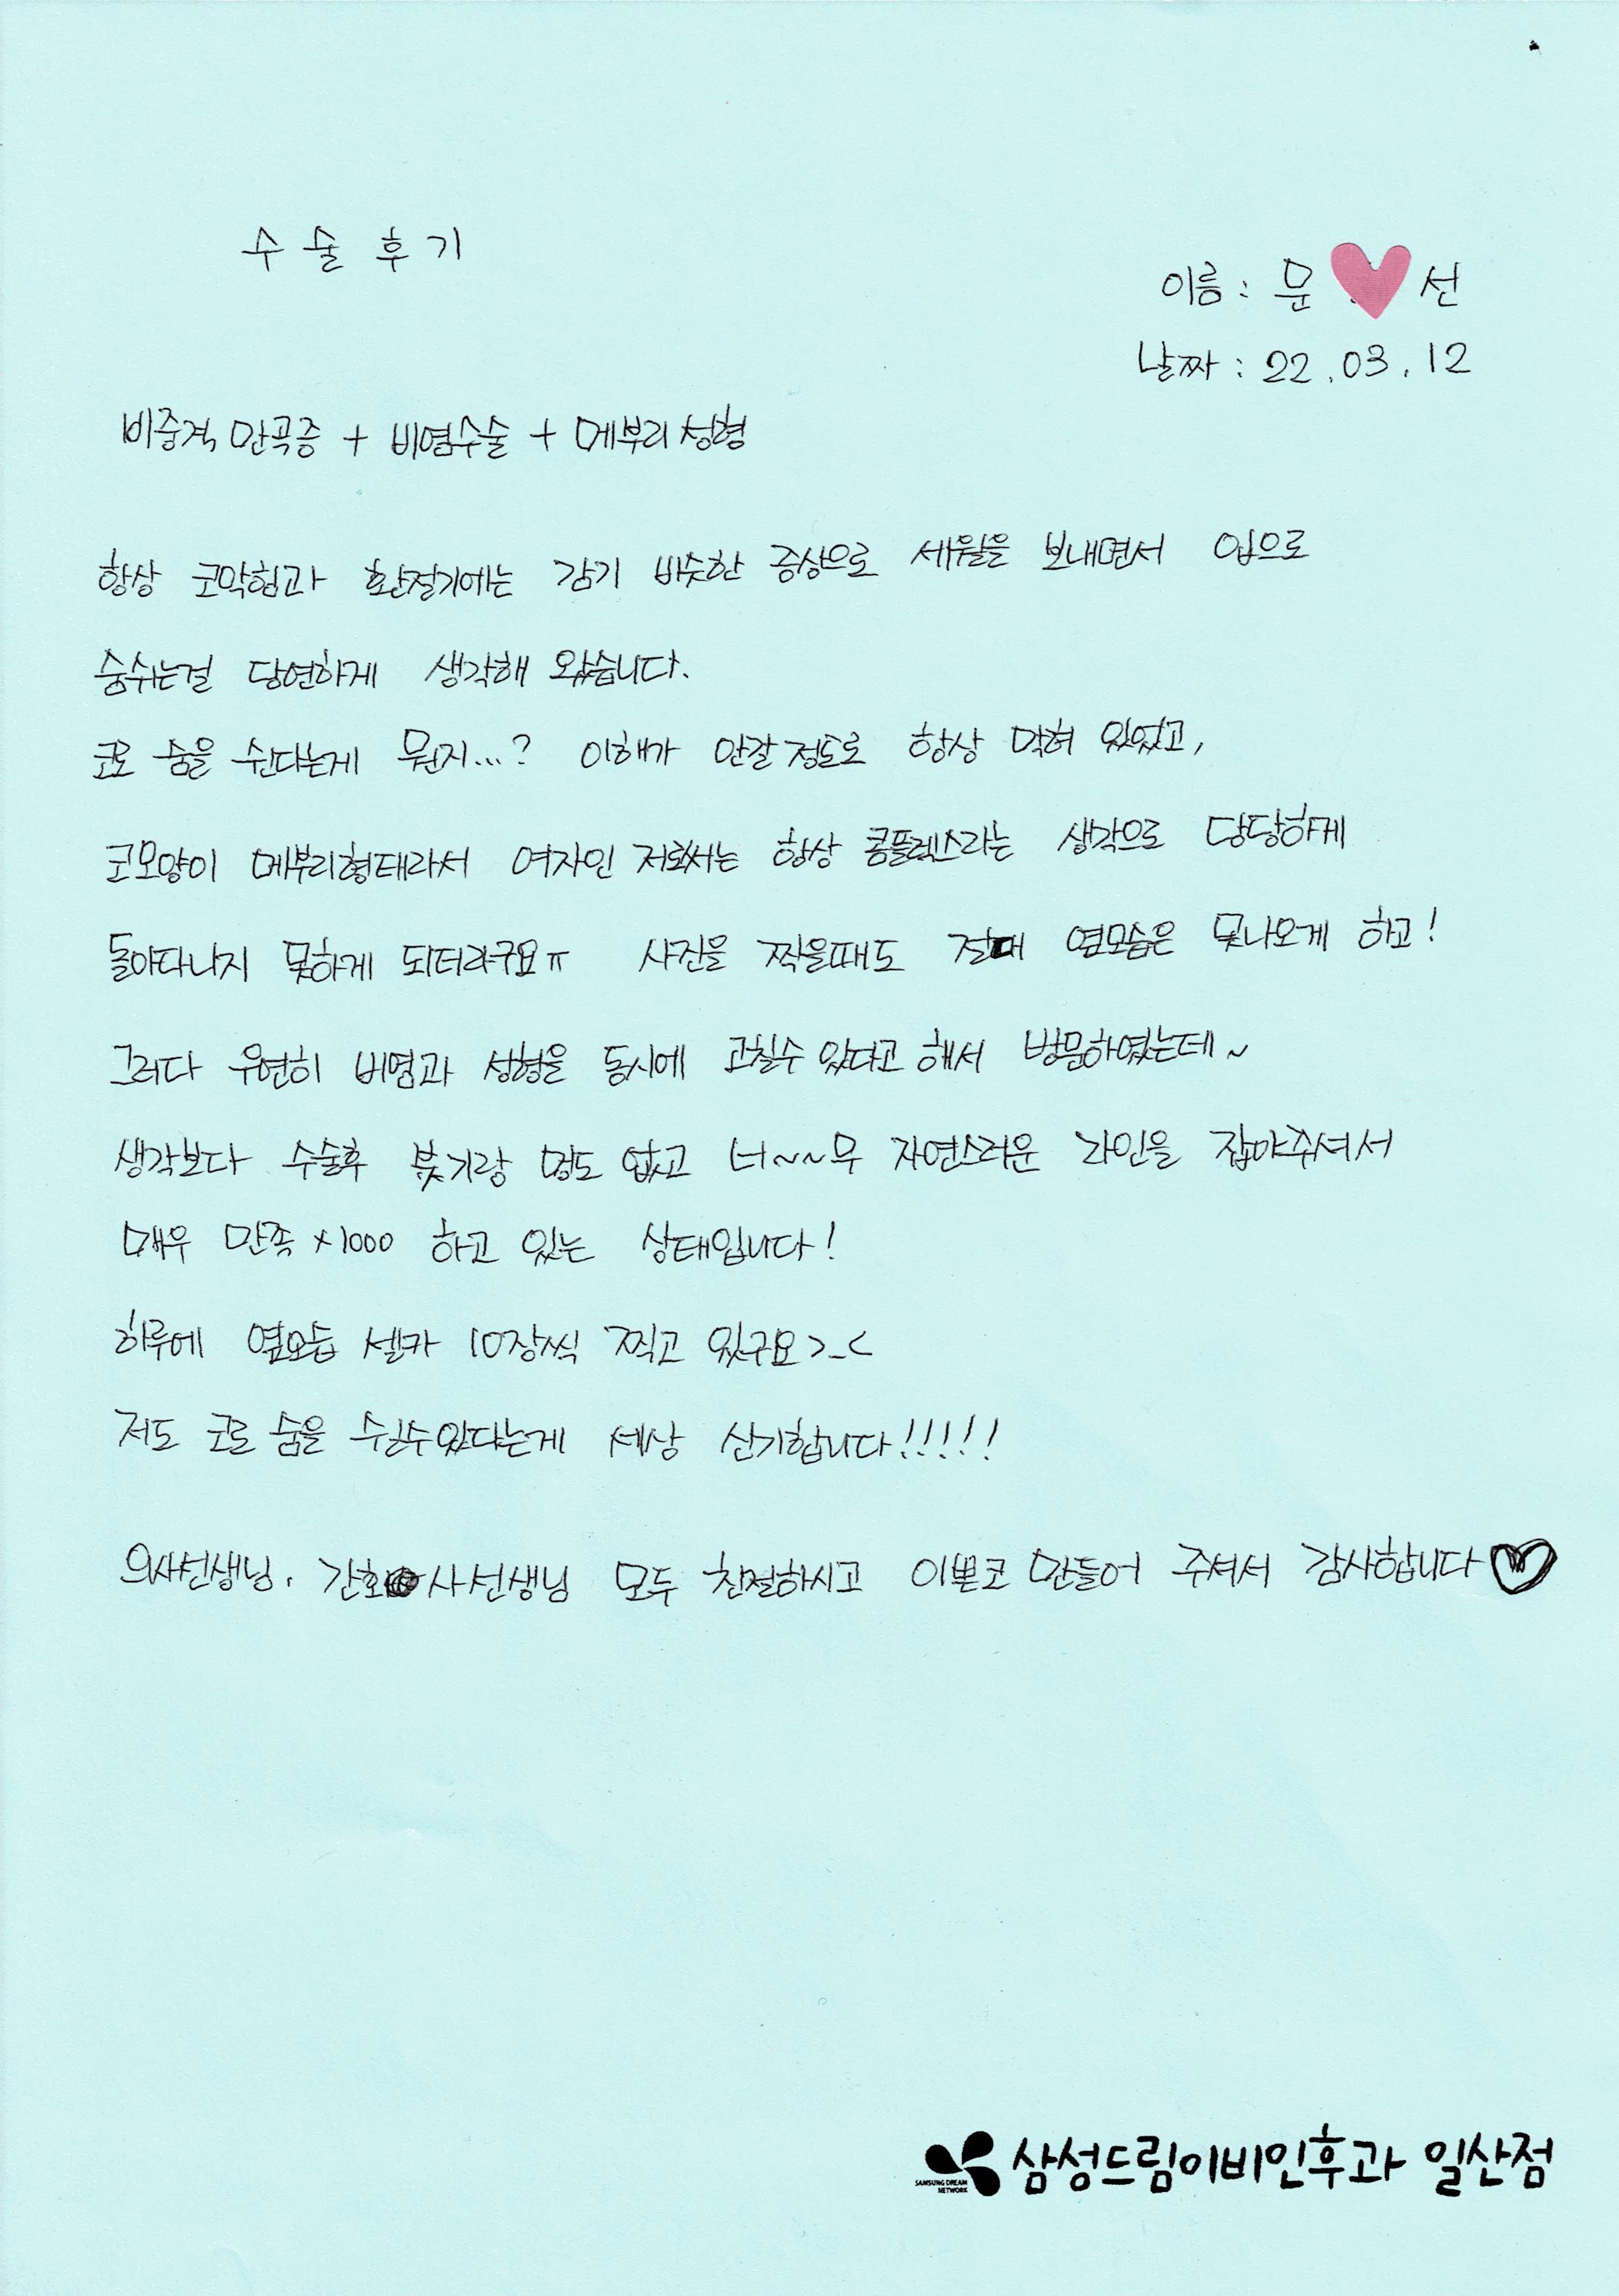 수술후기
이름 : 문 선
날짜 : 22.03.12
비중격 만곡증 + 비염수술 + 메부리 성형
항상 코막힘과 환절기에는 감기 비슷한 증상으로 세월을 보내면서 입으로
숨쉬는걸 당연하게 생각해 왔습니다.
코로 숨을 쉰다는게 뭔지...? 이해가 안갈 정도로 항상 막혀 있었고,
코모양이 메부리형태라서 여자인 저로써는 항상 콤플렉스라는 생각으로 당당하게
돌아다니지 못하게 되더라구요ㅠ 사진을 찍을때도 절대 옆모습은 못나오게 하고!
그러다 우연히 비염과 성형을 동시에 고칠수 있다고 해서 방문하였는데~
생각보다 수술후 붓기랑 멍도 없고 너~~무 자연스러운 라인을 잡아주셔서
매우 만족 x1000 하고 있는 상태입니다!
하루에 옆모습 셀카 10장씩 찍고 있구요>_<
저도 코로 숨을 쉴수있다는게 세상 신기합니다!!!!!
의사선생님, 간호사선생님 모두 친절하시고 이쁜코 만들어 주셔서 감사합니다♡
SAMSUNG DREAM NETWORK 삼성드림이비인후과 일산점